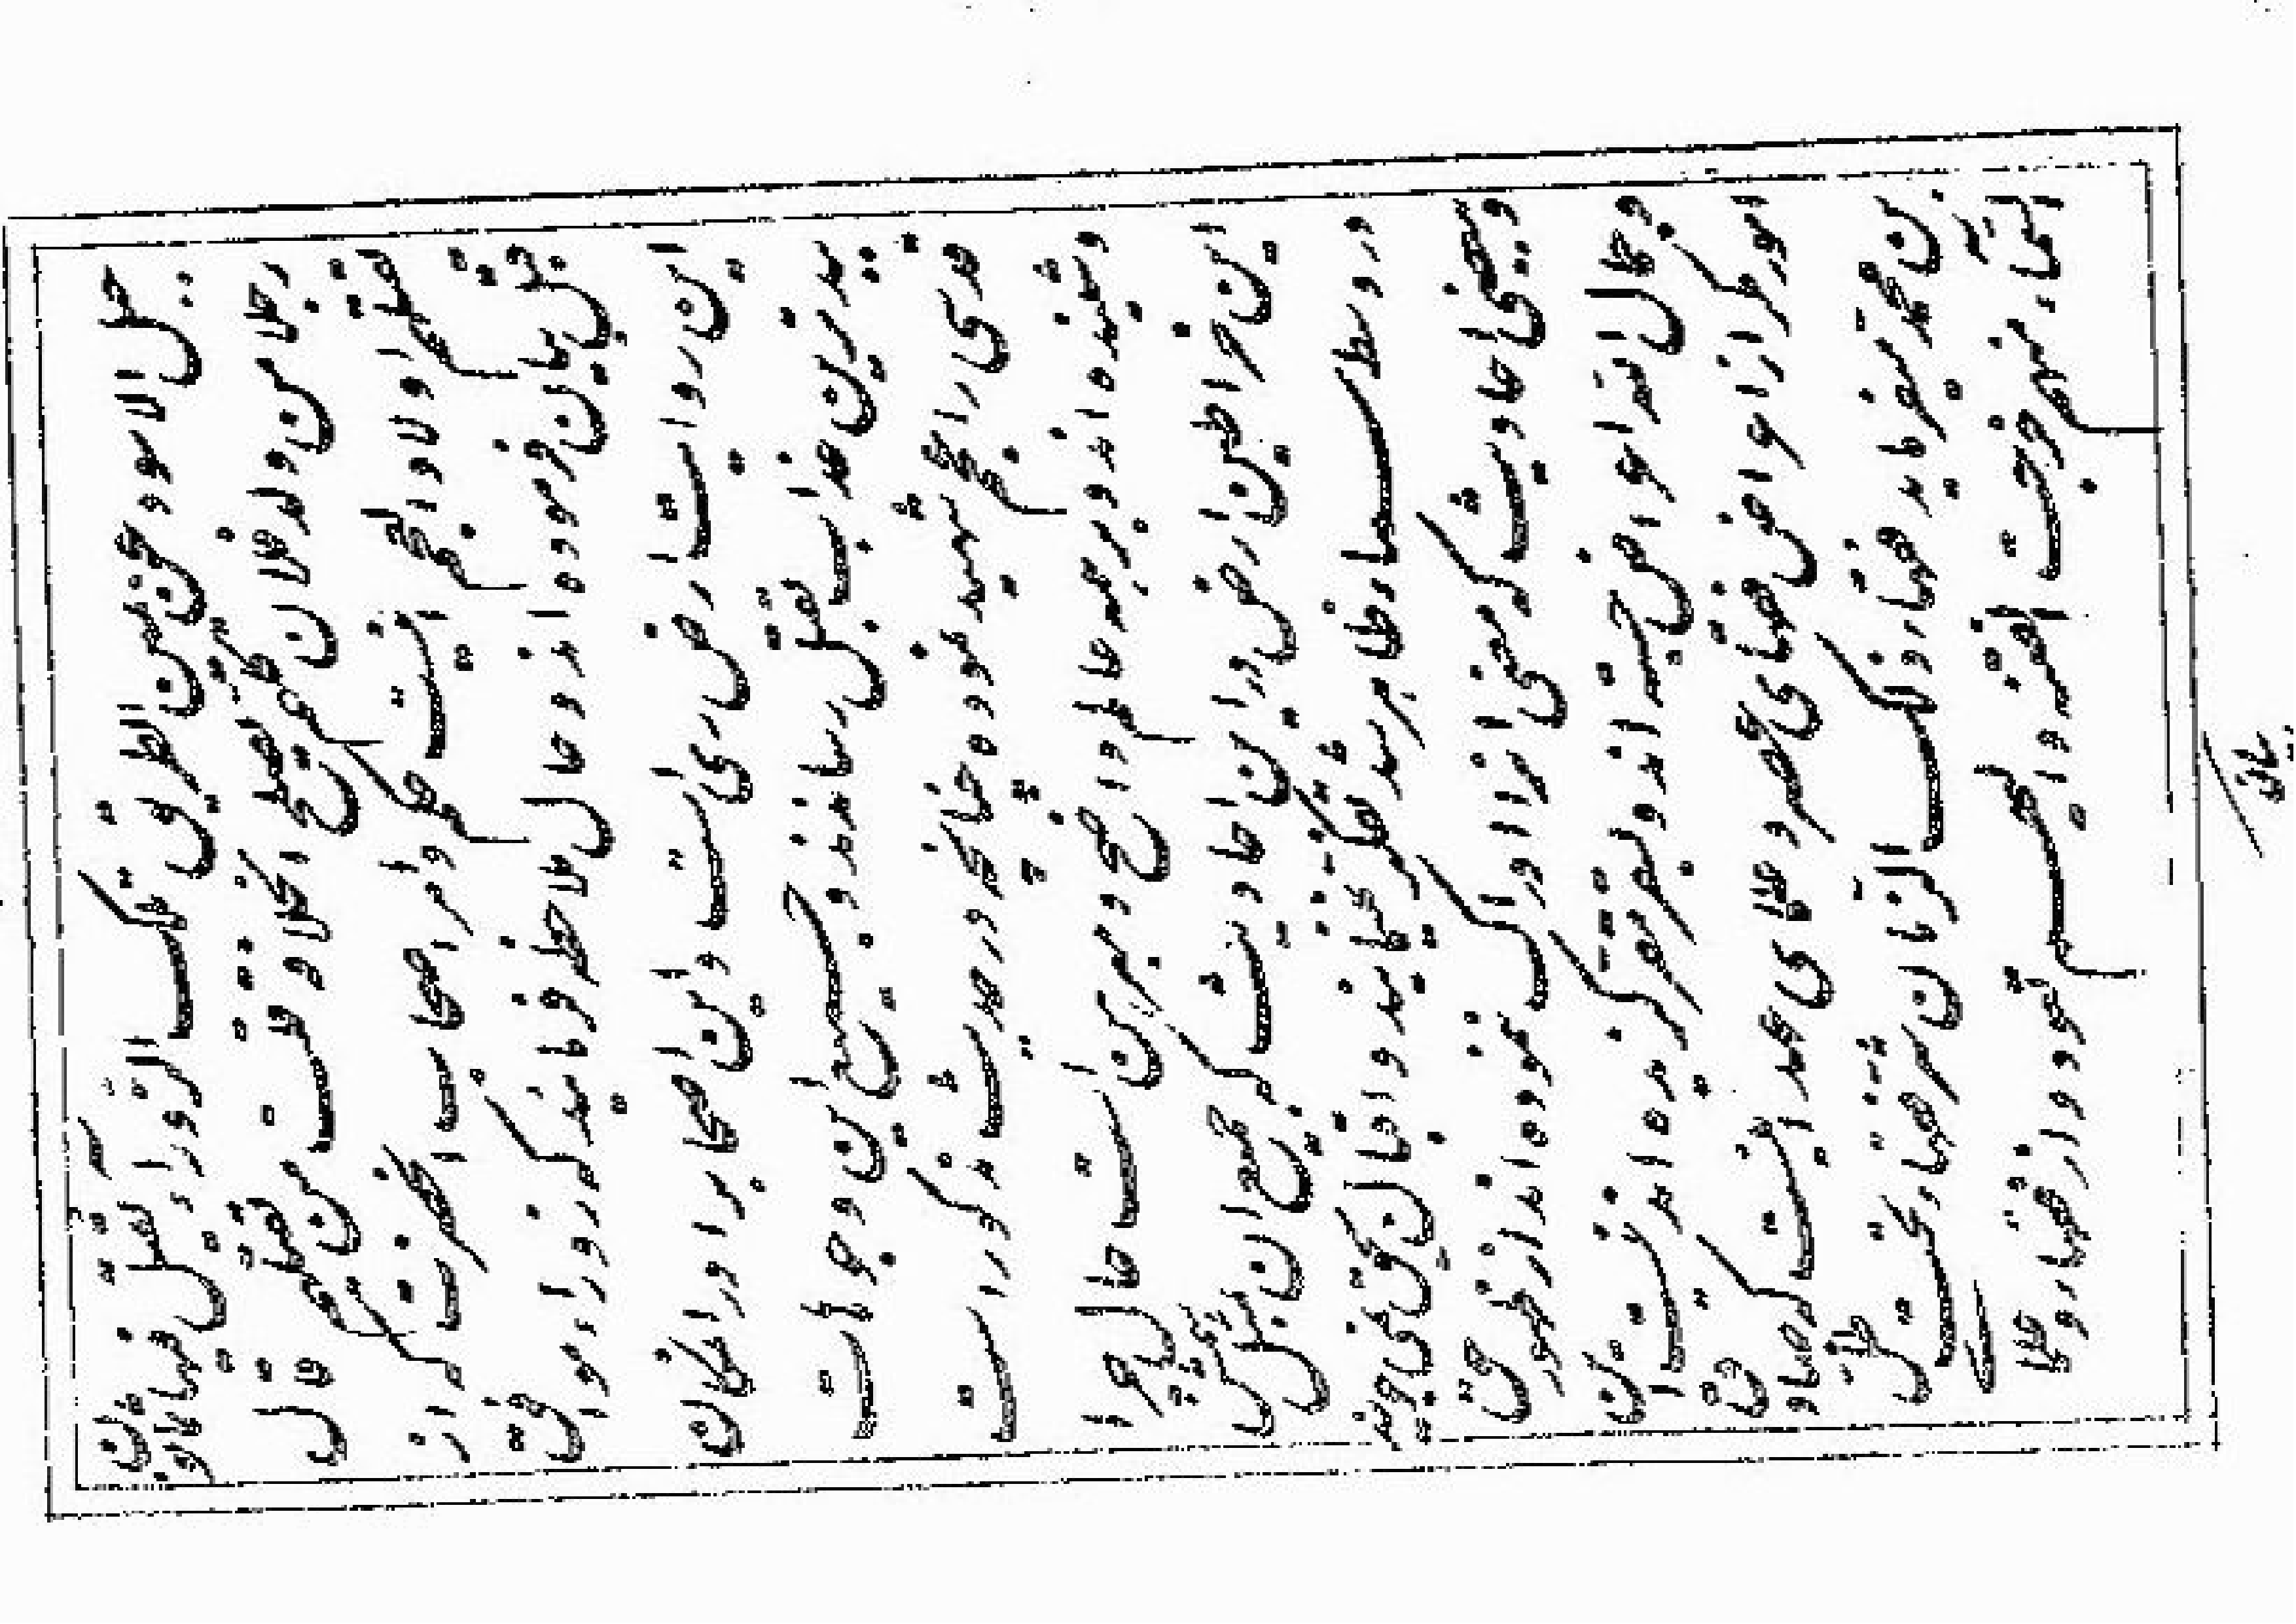 جبل الاسود عن یمین الطریق تلک الزوراء یقتل فیها ثمانون
رجلا من ولد فلان کلهم یصلح الخلافة قلت من یقتلهم قال
اولاد العجم اینست حکم و امر اصحاب انحضرت که از
قبل بیان فرموده اند و حال ملاحظه فرمائید که زوراء موافق
این روایت ارض ری است و این اصحاب را در ان مکان
ببدترین عذاب بقتل رسانیدند و جمیع این وجودات
قدسی را عجم شهید نموده چنانچه در حدیث مذکور است
و شنیده اند و بر همه عالم واضح و مبرهن است حال چرا
این خراطین ارض در این احادیث که جمیع ان بمثل شمس
در وسط سماء ظاهر شد تفکر نمینمایند و اقبال بحق نمیجویند
و ببعضی احادیث که معنی انرا ادراک ننموده اند از ظهور حق
و جمال الله اعراض جسته اند و بسقر مقر گزیده اند نیست این
امور مگر از اعراض فقهای عصر و علمای عهد اینست که صادق
بن محمد میفرماید فقهاء ذلک الزمان شر فقهاء تحت ظل
السماء منهم خرجت الفتنة و الیهم تعود و از فقهاء و علما